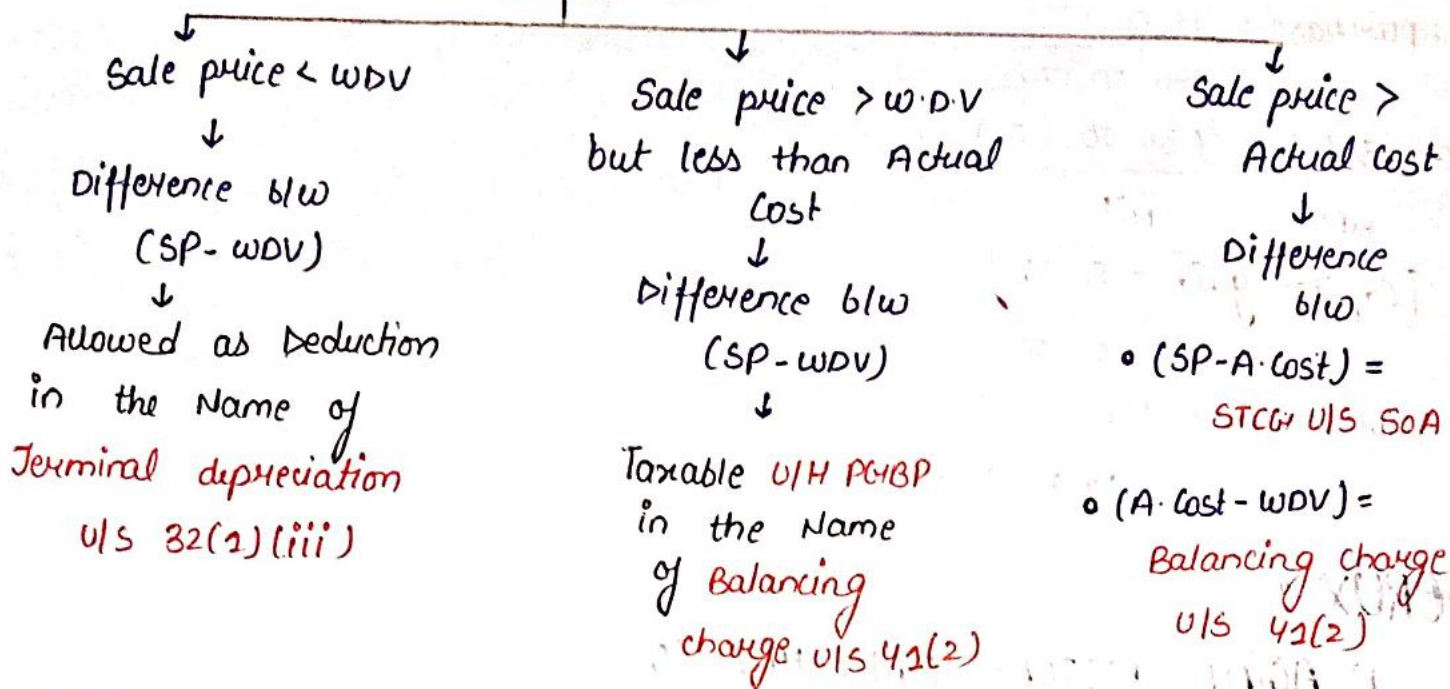 Sale price < WDV
↓
Difference b/w
(SP - WDV)
↓
Allowed as Deduction
in the Name of
Terminal depreciation
U/S 32(1)(iii)
Sale price > W.D.V
but less than Actual
Cost
↓
Difference b/w
(SP - WDV)
↓
Taxable U/H PGBP
in the Name
of Balancing
charge U/S 41(2)
Sale price >
Actual Cost
↓
Difference
b/w
• (SP - A. Cost) =
STCG U/S 50A
• (A. Cost - WDV) =
Balancing charge
U/S 41(2)